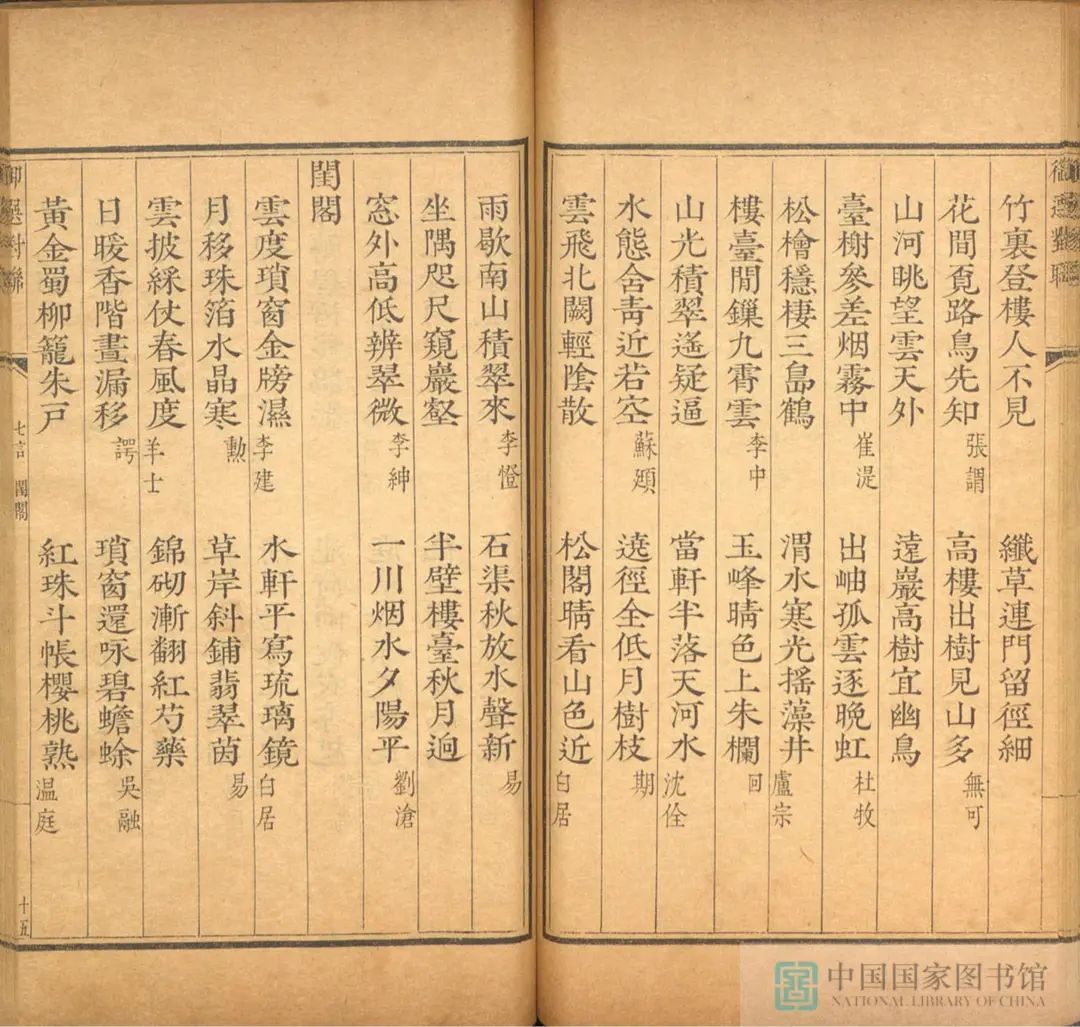 御選對聯
竹裏登樓人不見 纖草連門留徑細
花間覔路鳥先知 張謂 高樓出樹見山多 無可
山河眺望雲天外 遠巖高樹宜幽鳥
臺榭參差烟霧中 崔湜 出岫孤雲逐晚虹 杜牧
松檜穩棲三島鶴 渭水寒光搖藻井 盧宗
樓臺閒鏁九霄雲 李中 玉峰晴色上朱欄 回
山光積翠遙疑逼 當軒半落天河水 沈佺
水態含青近若空 蘇頲 遶徑全低月樹枝 期
雲飛北闕輕陰散 松閣晴看山色近 白居
雨歇南山積翠來 李憕 石渠秋放水聲新 易
坐隅咫尺窺巖壑 半壁樓臺秋月逈
窓外高低辨翠微 李紳 一川烟水夕陽平 劉滄
閨閣
雲度瑣窗金牓濕 李建 水軒平寫琉璃鏡 白居
月移珠箔水晶寒 勳 草岸斜鋪翡翠茵 易
雲披綵仗春風度 羊士 錦砌漸翻紅芍藥
日暖香階晝漏移 諤 瑣窗還咏碧蟾蜍 吳融
黃金蜀柳籠朱戸 紅珠斗帳櫻桃熟 温庭
御選對聯 七言 閨閣 十五
中国国家图书馆
NATIONAL LIBRARY OF CHINA